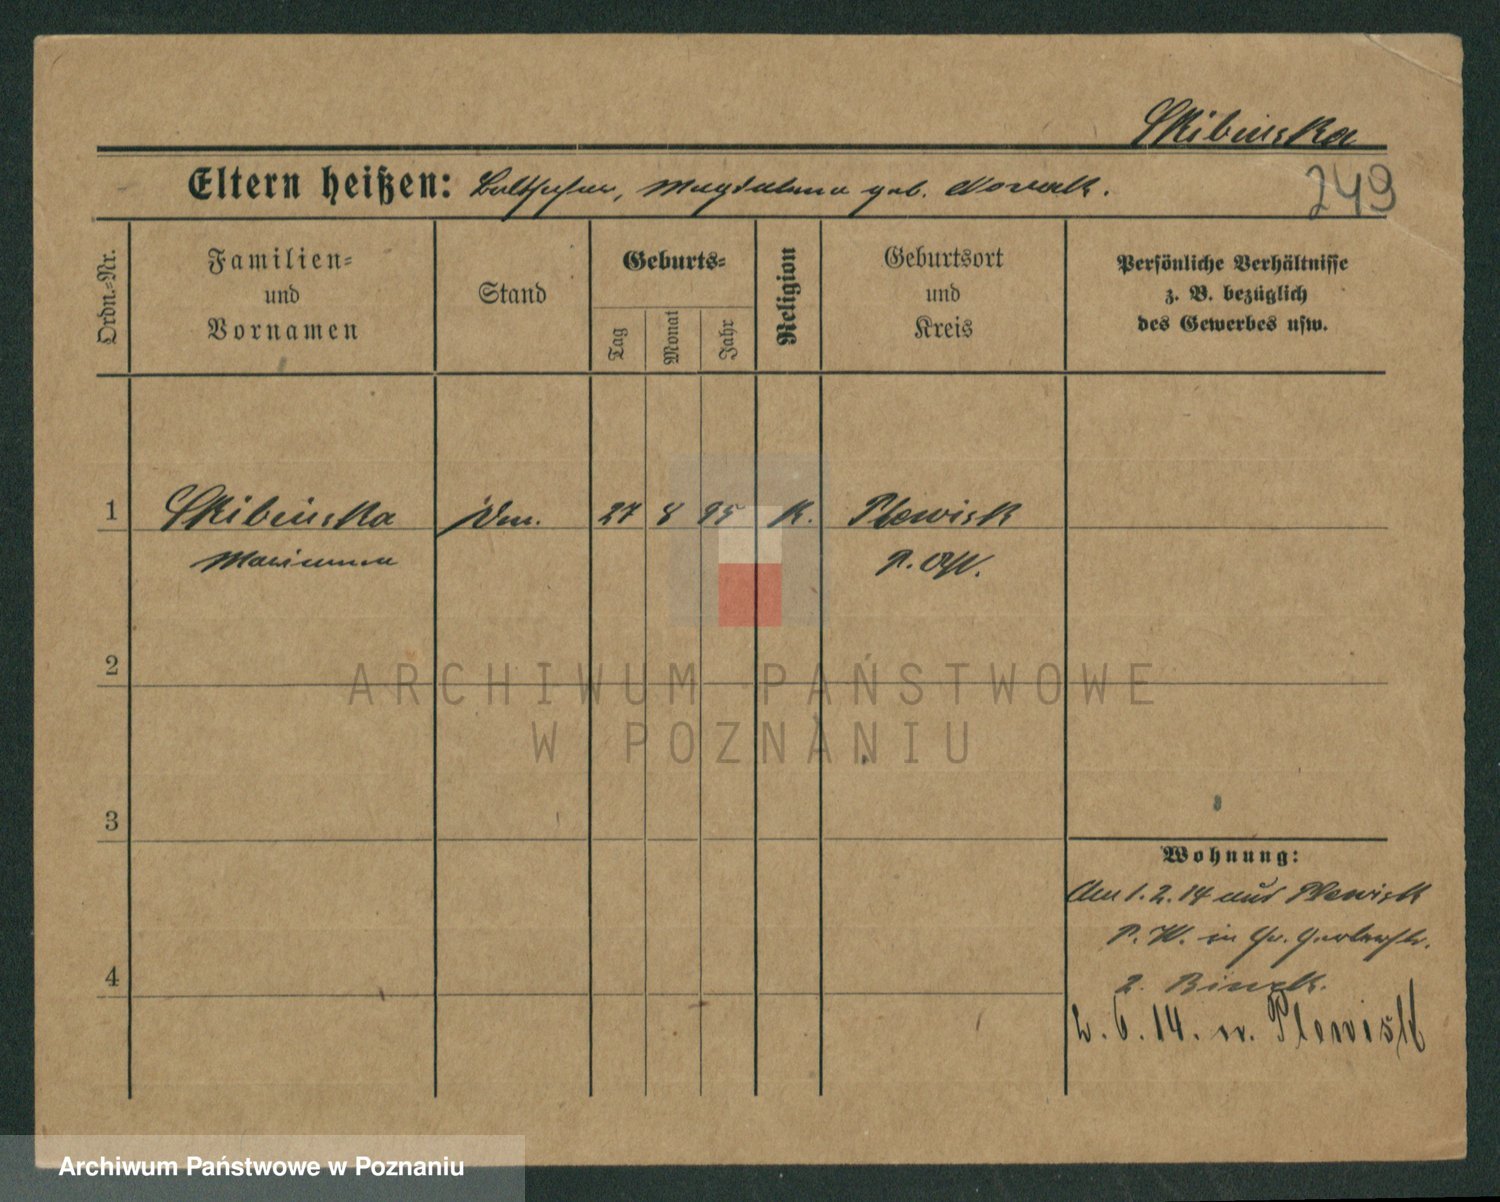 Skibinska
Eltern heißen: Balthasar, Magdalena geb. Nowak.
249
Ordn.-Nr.
Familien-
und
Vornamen
Stand
Geburts-
Tag
Monat
Jahr
Religion
Geburtsort
und
Kreis
Persönliche Verhältnisse
z. B. bezüglich
des Gewerbes usw.
1 Skibinska 27 8 95 K. Plewisk
Marianna P.
2
ARCHIWUM PAŃSTWOWE
W POZNANIU
3
Wohnung:
Am 1.2.14 aus Plewisk
P. W. in Gr. Gerberstr.
4
2.
2. 6. 14. n. Plewisk
Archiwum Państwowe w Poznaniu